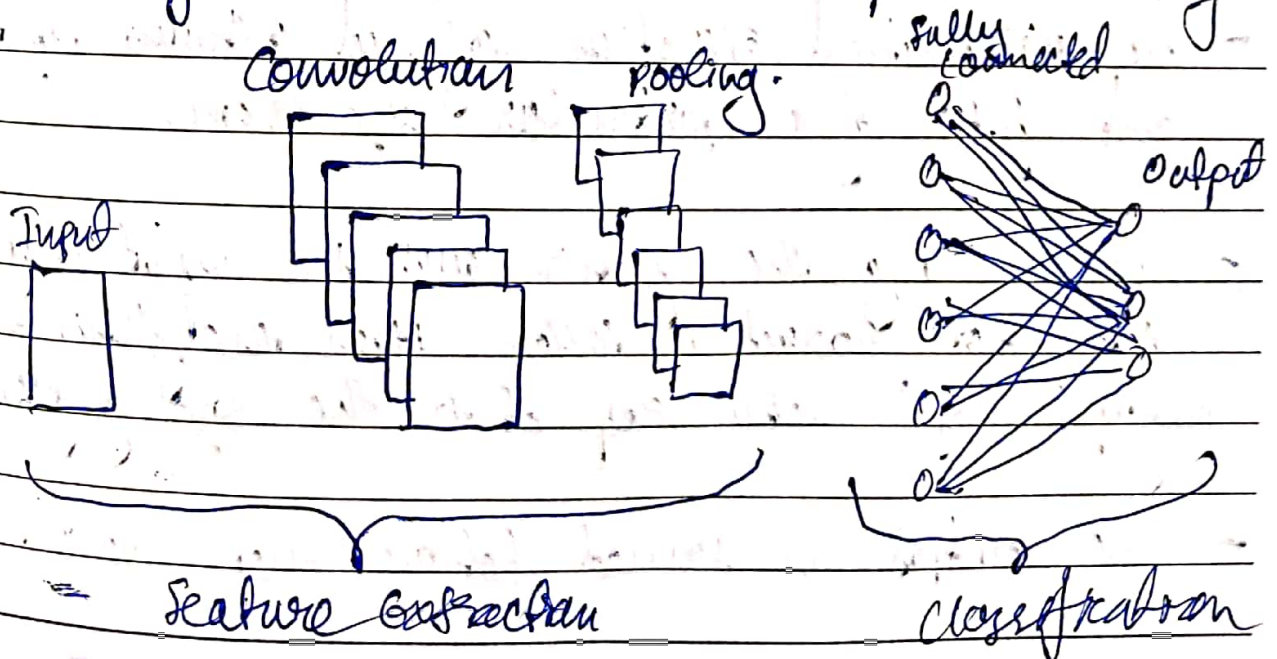 Convolution
Pooling.
fully
connected
Output
Input
Feature Extraction
Classification